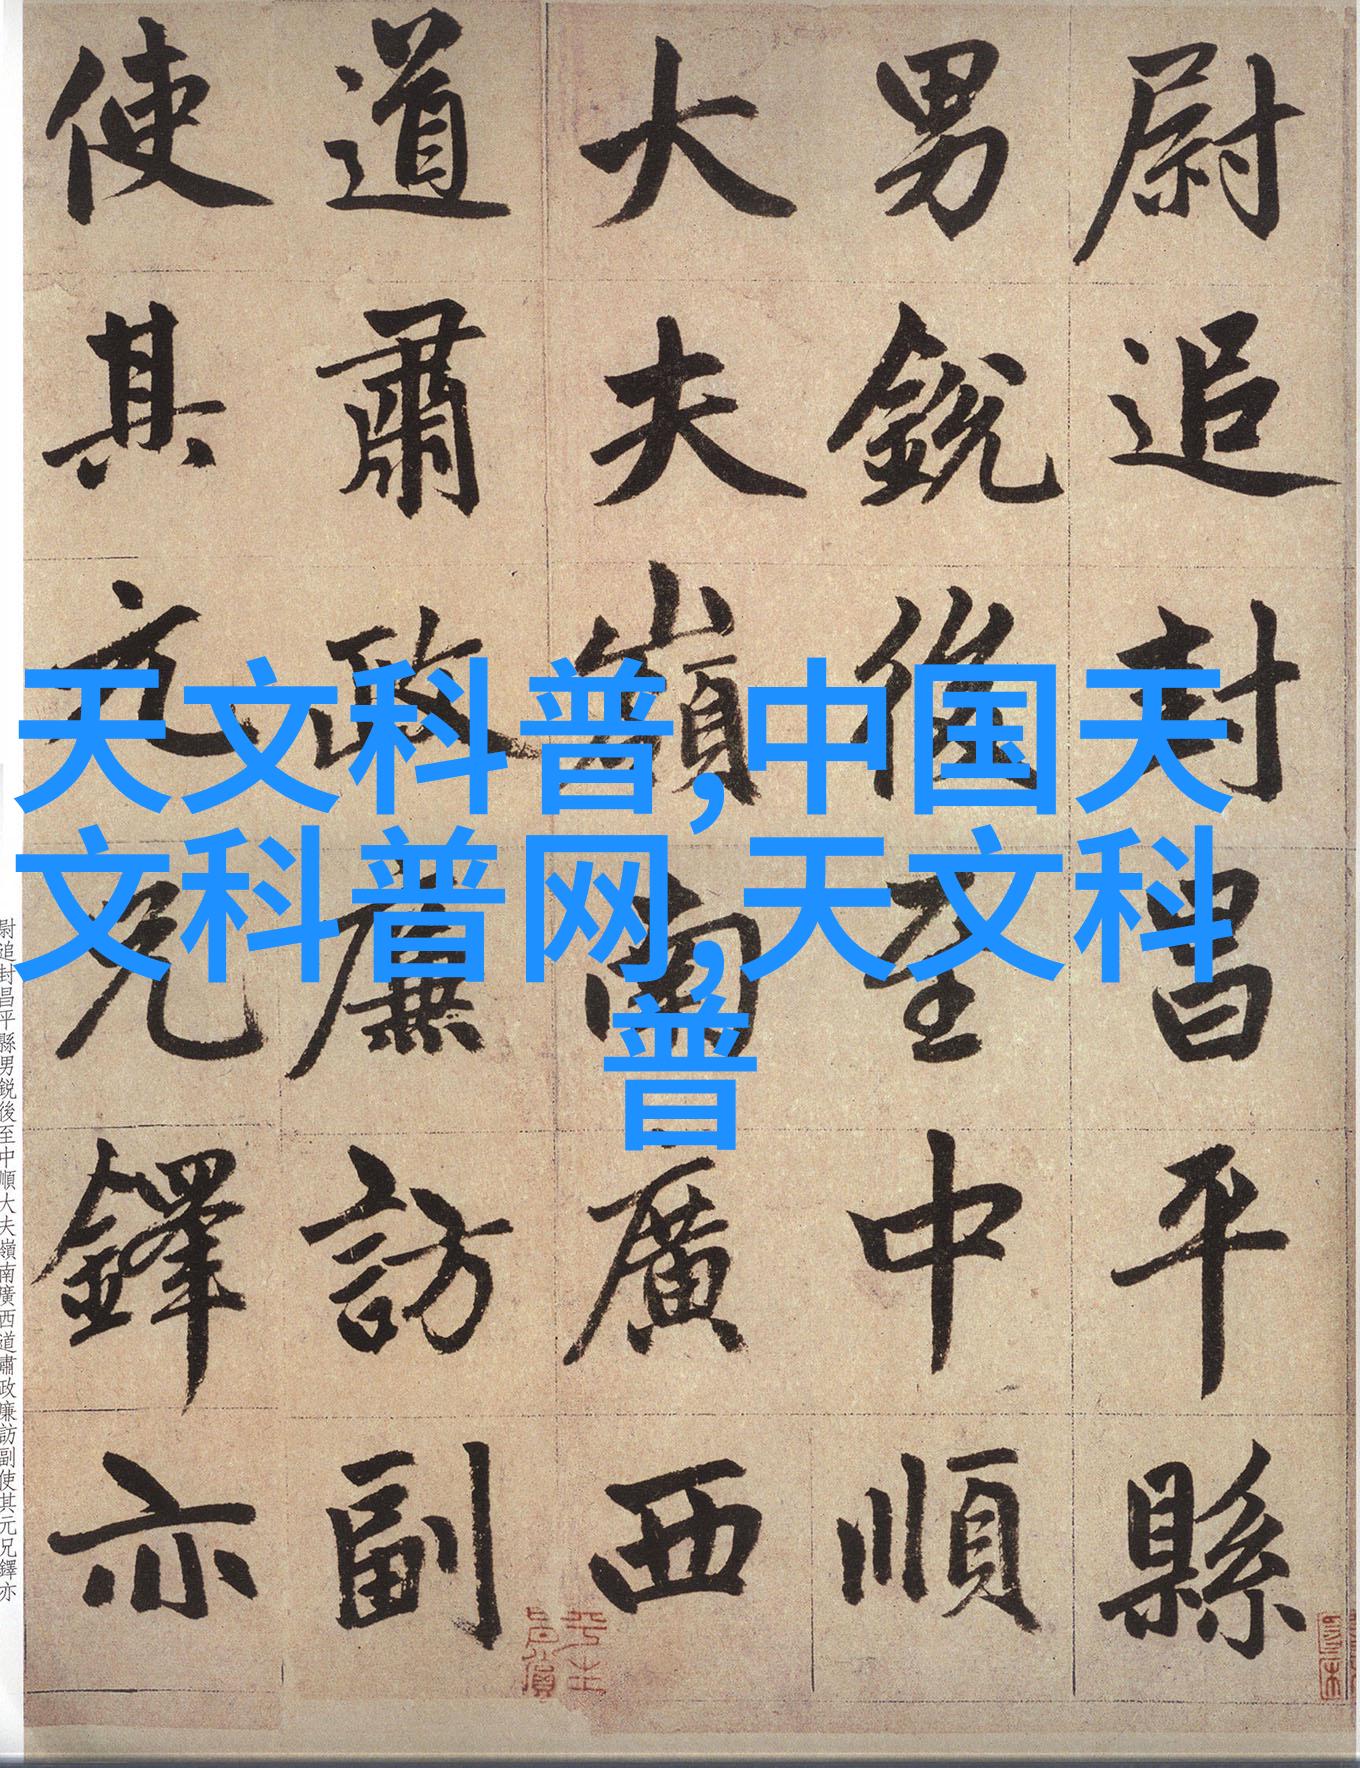 尉追封昌平縣
男銳後至中順
大夫嶺南廣西
道肅政廉訪副
使其元兄鐸亦
天文科普,中国天
文科普网,天文科
普
尉追封昌平縣男銳後至中順大夫嶺南廣西道肅政廉訪副使其元兄鐸亦